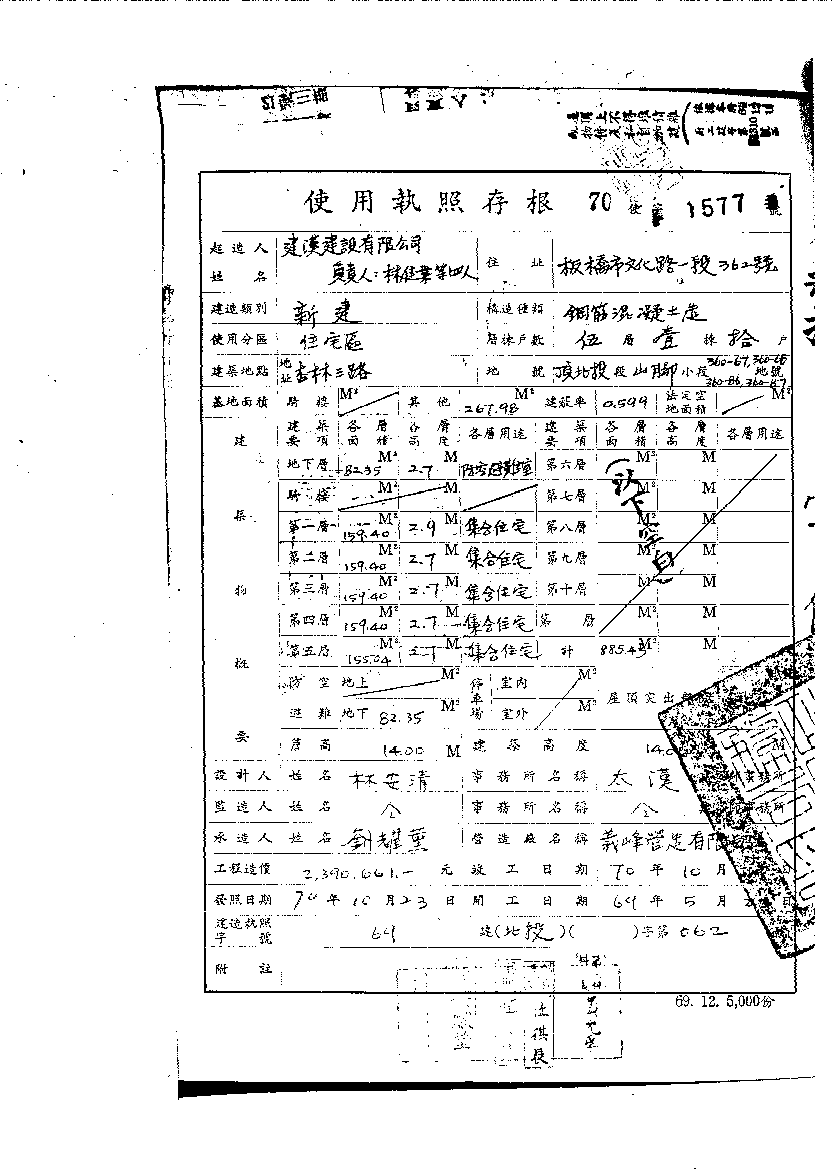 使用執照存根 70 使 1577 號
起造人姓名 建漢建設有限公司
負責人：林 業等四人
住址 板橋市文化路一段362號
建造類別 新建 構造種類 鋼筋混凝土造
使用分區 住宅區 層棟戶數 伍層 壹棟 拾戶
建築地點 地址 杏林三路 地號 頂北投段山脚小段 360-67, 360-68 地號
360-86, 360-87
基地面積 騎樓 M² 其他 267.98 M² 建蔽率 0.599 法定空地面積 M²
建築物概要 建築要項 各層面積 各層高度 各層用途 建築要項 各層面積 各層高度 各層用途
地下層 82.35 M² 2.7 M 防空避難室 第六層 M² M
騎樓 M² M 第七層 M² M
第一層 159.40 M² 2.9 M 集合住宅 第八層 M² M
第二層 159.40 M² 2.7 M 集合住宅 第九層 M² M
第三層 159.40 M² 2.7 M 集合住宅 第十層 M² M
第四層 159.40 M² 2.7 M 集合住宅 第 層 M² M
第五層 155.04 M² 2.7 M 集合住宅 計 885.43 M² M
(以下空白)
防空 地上 M² 停車場 室內 M² 屋頂突出
避難 地下 82.35 M² 室外 M²
簷高 14.00 M 建築高度 14.0
設計人 姓名 林安清 事務所名稱 太漢 事務所
監造人 姓名 仝 事務所名稱 仝 事務所
承造人 姓名 劉耀 營造廠名稱 義峰營造有限
工程造價 2,390,661.- 元 竣工日期 70年10月
發照日期 70年10月23日 開工日期 69年5月
建造執照字號 69 建(北投)( )字第062
附註
69. 12. 5,000份